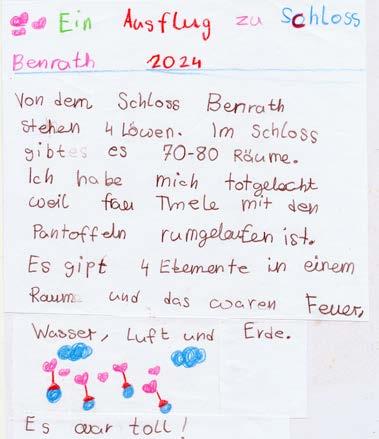 Ein Ausflug zu Schloss
Benrath 2024
Von dem Schloss Benrath
stehen 4 Löwen. Im Schloss
gibtes es 70-80 Räume.
Ich habe mich totgelacht
weil frau Thiele mit den
Pantoffeln rumgelaufen ist.
Es gipt 4 Elemente in einem
Raum und das waren Feuer,
Wasser, Luft und Erde.
Es war toll!